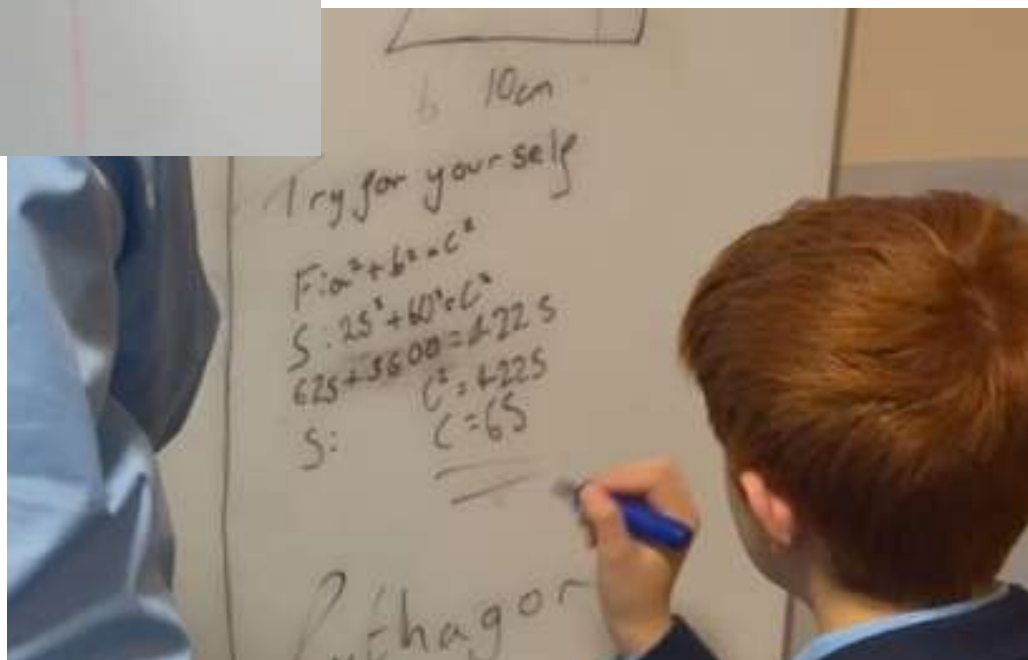 b 10cm
Try for your self
F: a² + b² = c²
S: 25² + 60² = c²
625 + 3600 = 4225
c² = 4225
S: c = 65
Pythagor